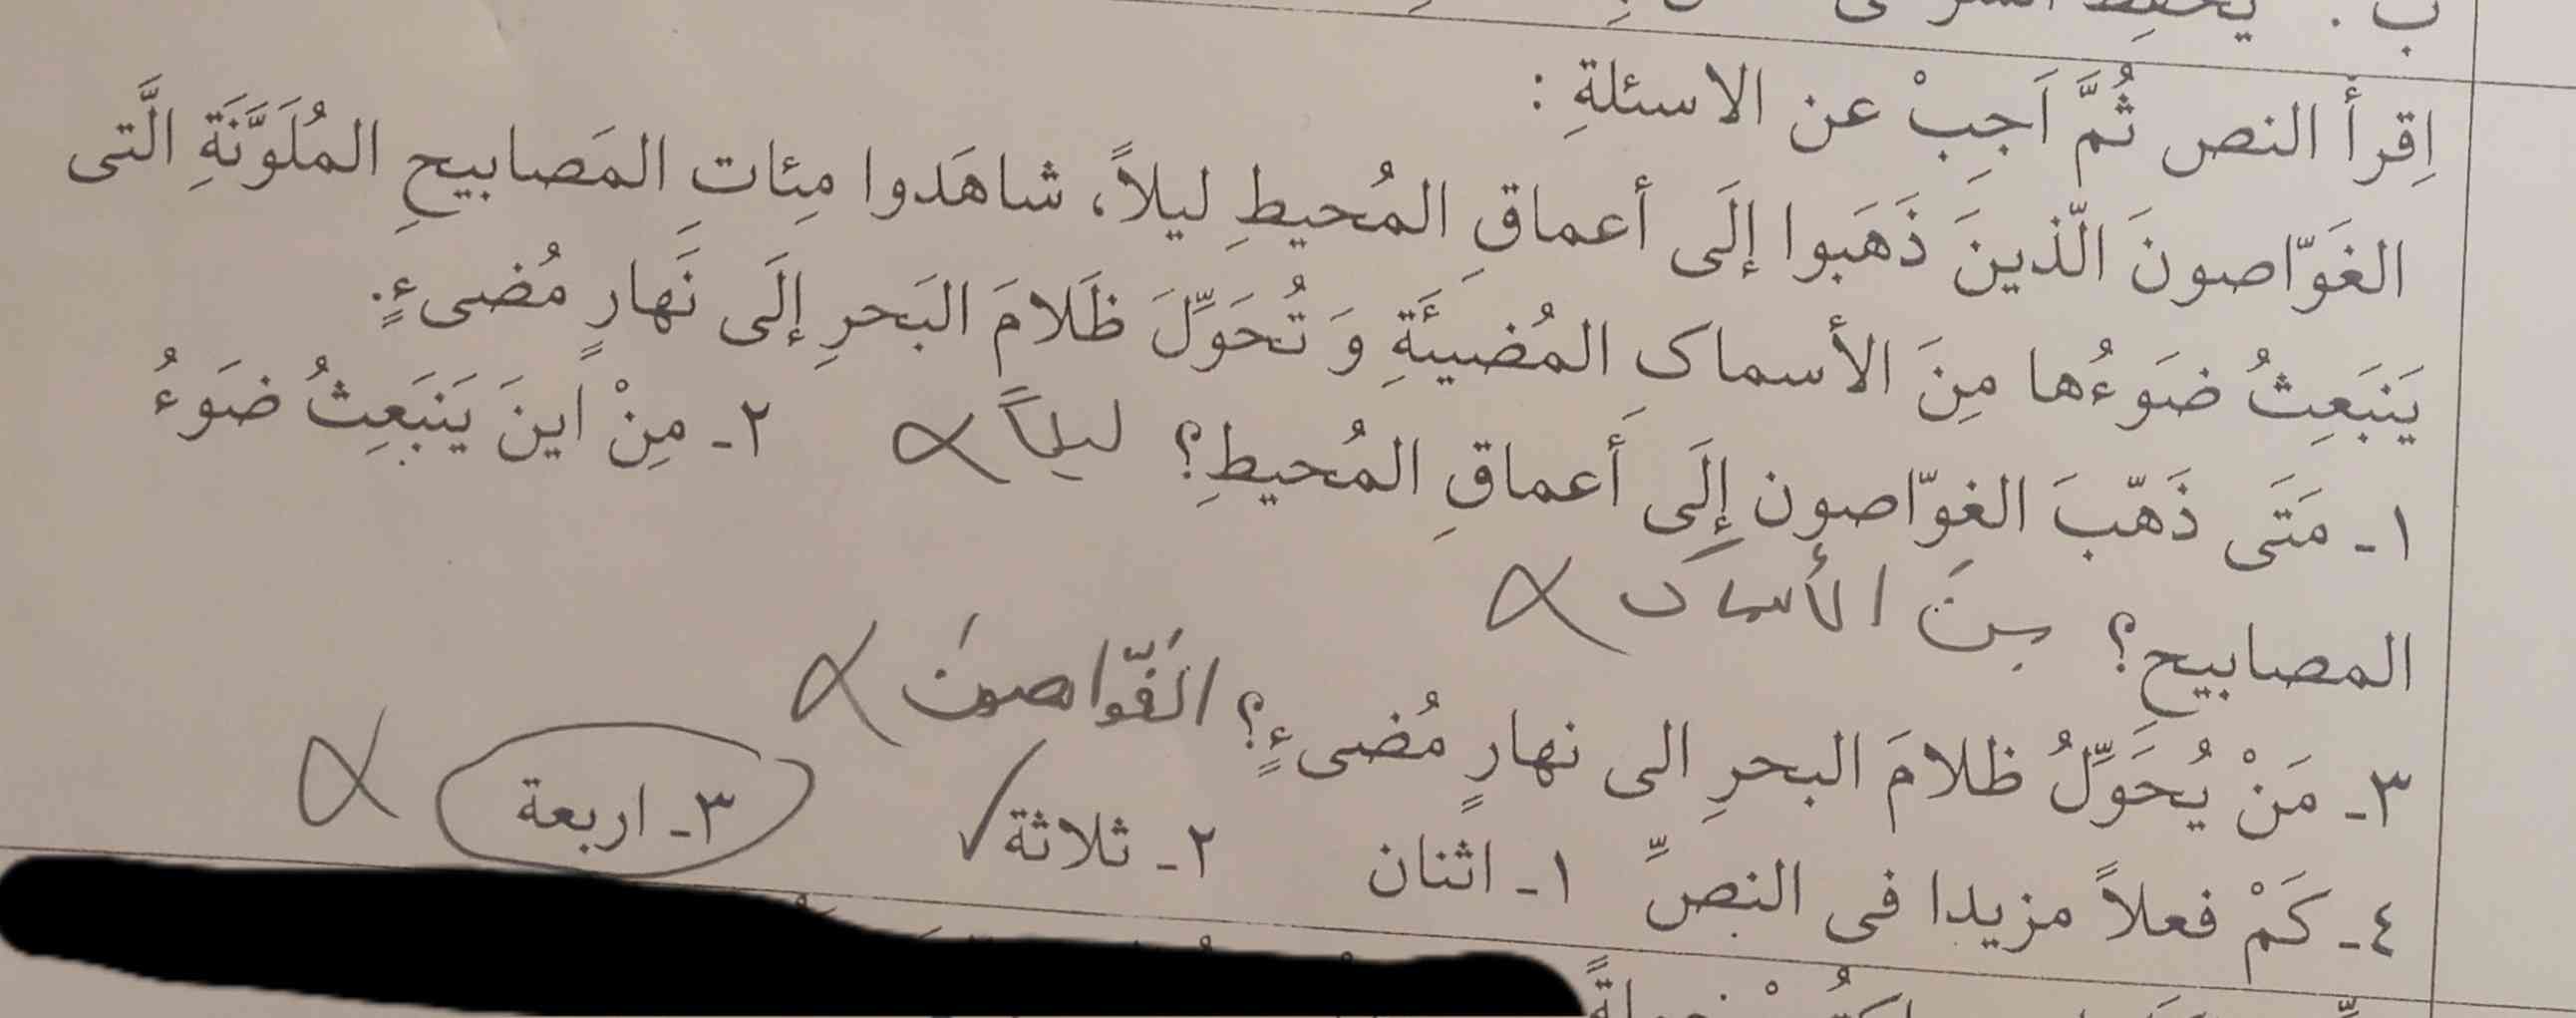 اِقرأ النص ثُمَّ اَجِبْ عن الاسئلةِ :
الغَوّاصونَ الّذينَ ذَهَبوا إلَى أعماقِ المُحيطِ ليلاً، شاهَدوا مِئاتِ المَصابيحِ المُلَوَّنَةِ الَّتی
يَنبَعِثُ ضَوءُها مِنَ الأسماکِ المُضيئَةِ وَ تُحَوِّلَ ظَلامَ البَحرِ إلَی نَهارٍ مُضیءٍ.
۱ـ مَتَی ذَهّبَ الغوّاصون إلَی أعماقِ المُحيطِ؟ ليلاً ۲ـ مِنْ اينَ يَنبَعِثُ ضَوءُ
المصابيحِ؟ مِنَ الأسماک
۳ـ مَنْ يُحَوِّلُ ظلامَ البحرِ الی نهارٍ مُضیءٍ؟ الغَوّاصونَ
٤ـ كَمْ فعلاً مزيدا فی النصِّ ۱ـ اثنان ۲ـ ثلاثة ✓ ۳ـ اربعة